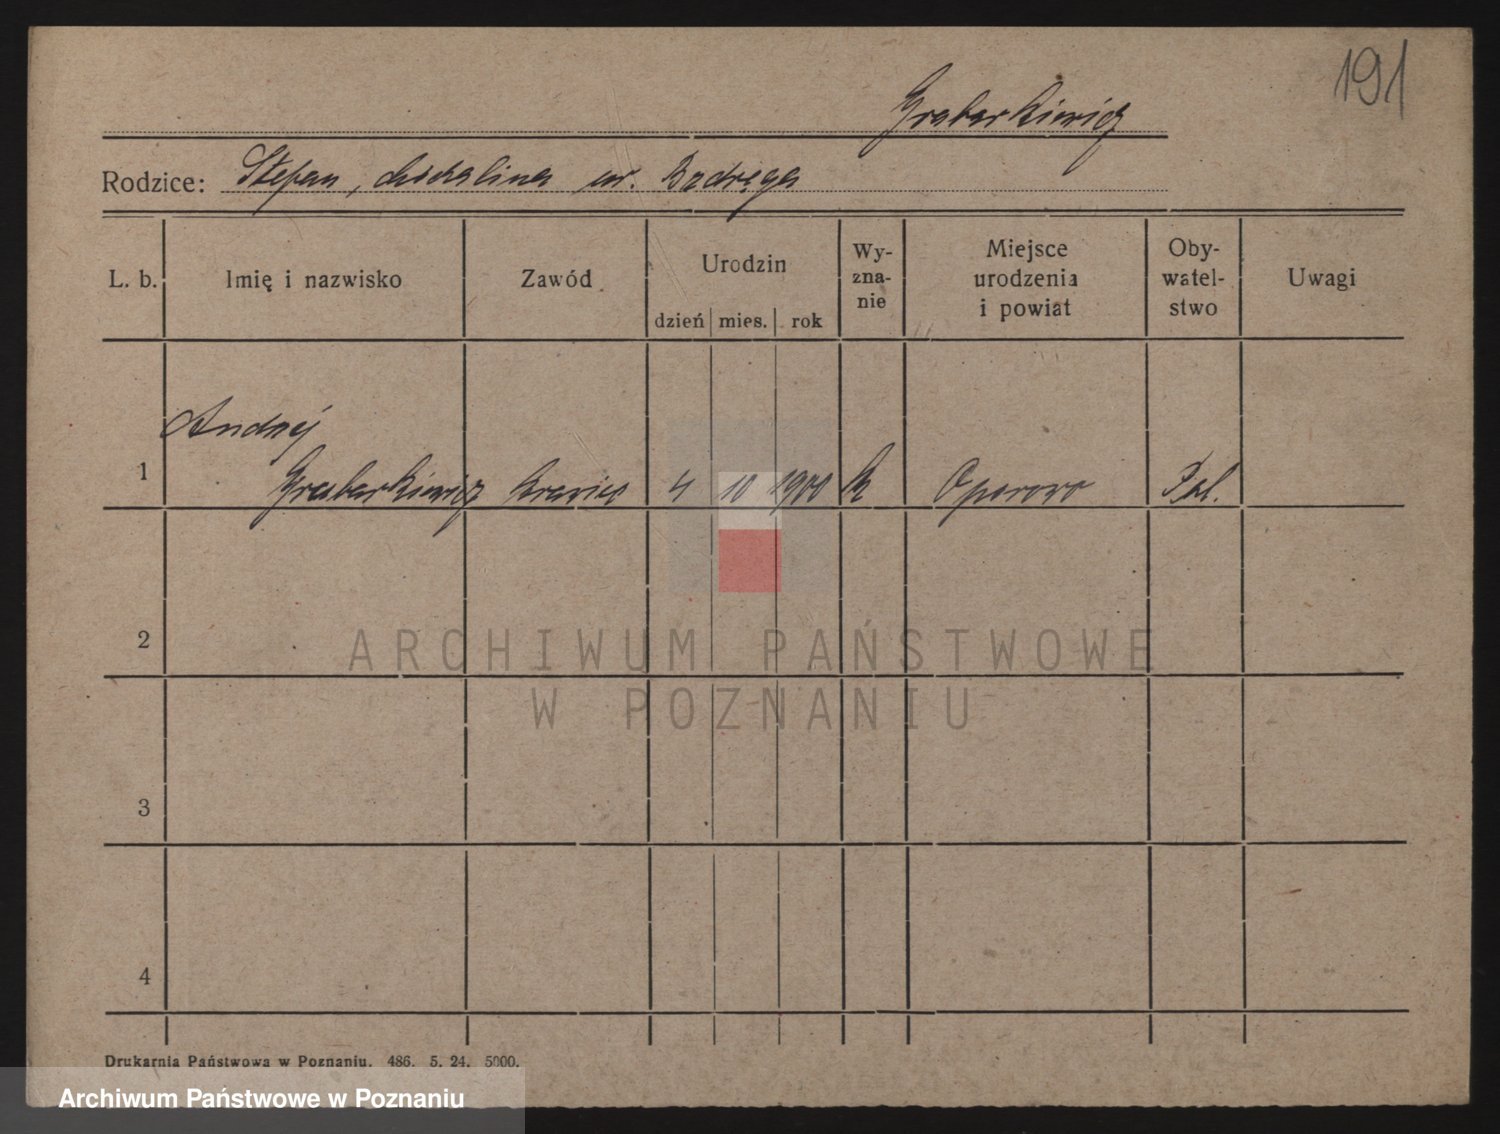 191
Grabarkiewicz
Rodzice: Stefan, Michalina ur. Bzdręga
L. b.
Imię i nazwisko
Zawód
Urodzin
dzień mies. rok
Wy-
zna-
nie
Miejsce
urodzenia
i powiat
Oby-
watel-
stwo
Uwagi
Andrzej
1 Grabarkiewicz krawiec 4 10 1900 k Oporowo Pol.
2
3
4
ARCHIWUM PAŃSTWOWE
W POZNANIU
Drukarnia Państwowa w Poznaniu. 486. 5. 24. 5000.
Archiwum Państwowe w Poznaniu